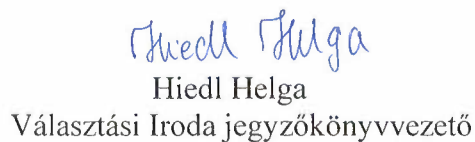 Hiedl Helga
Hiedl Helga
Választási Iroda jegyzőkönyvvezető